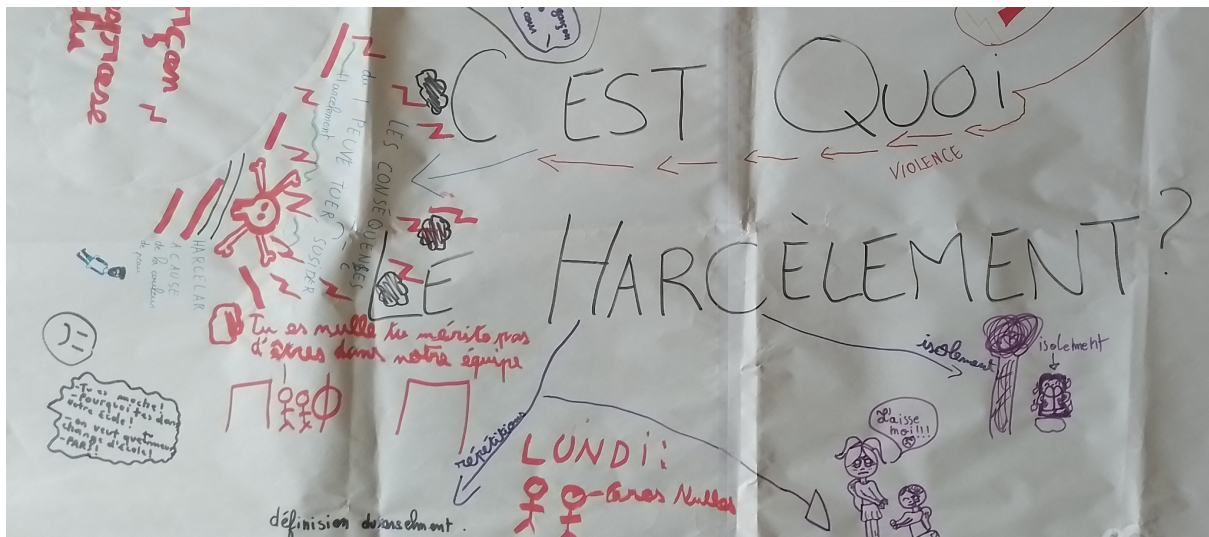 C'EST QUOI
VIOLENCE
LE HARCÈLEMENT?
LES CONSÉQUENCES
du
harcelment
PEUVE TUER
SUSIDER
HARCELAR
A CAUSE
de la couleur
de peau
Tu es nulle tu mérite pas
d'êtres dans notre équipe
-Tu es moche!
-Pourquoi tes dans
notre école!
-on veut que tu
change d'école!
-PARS!
répétitions
LUNDI:
Gros Nulles
définision du arselment.
isolement
isolement
Laisse
moi!!!